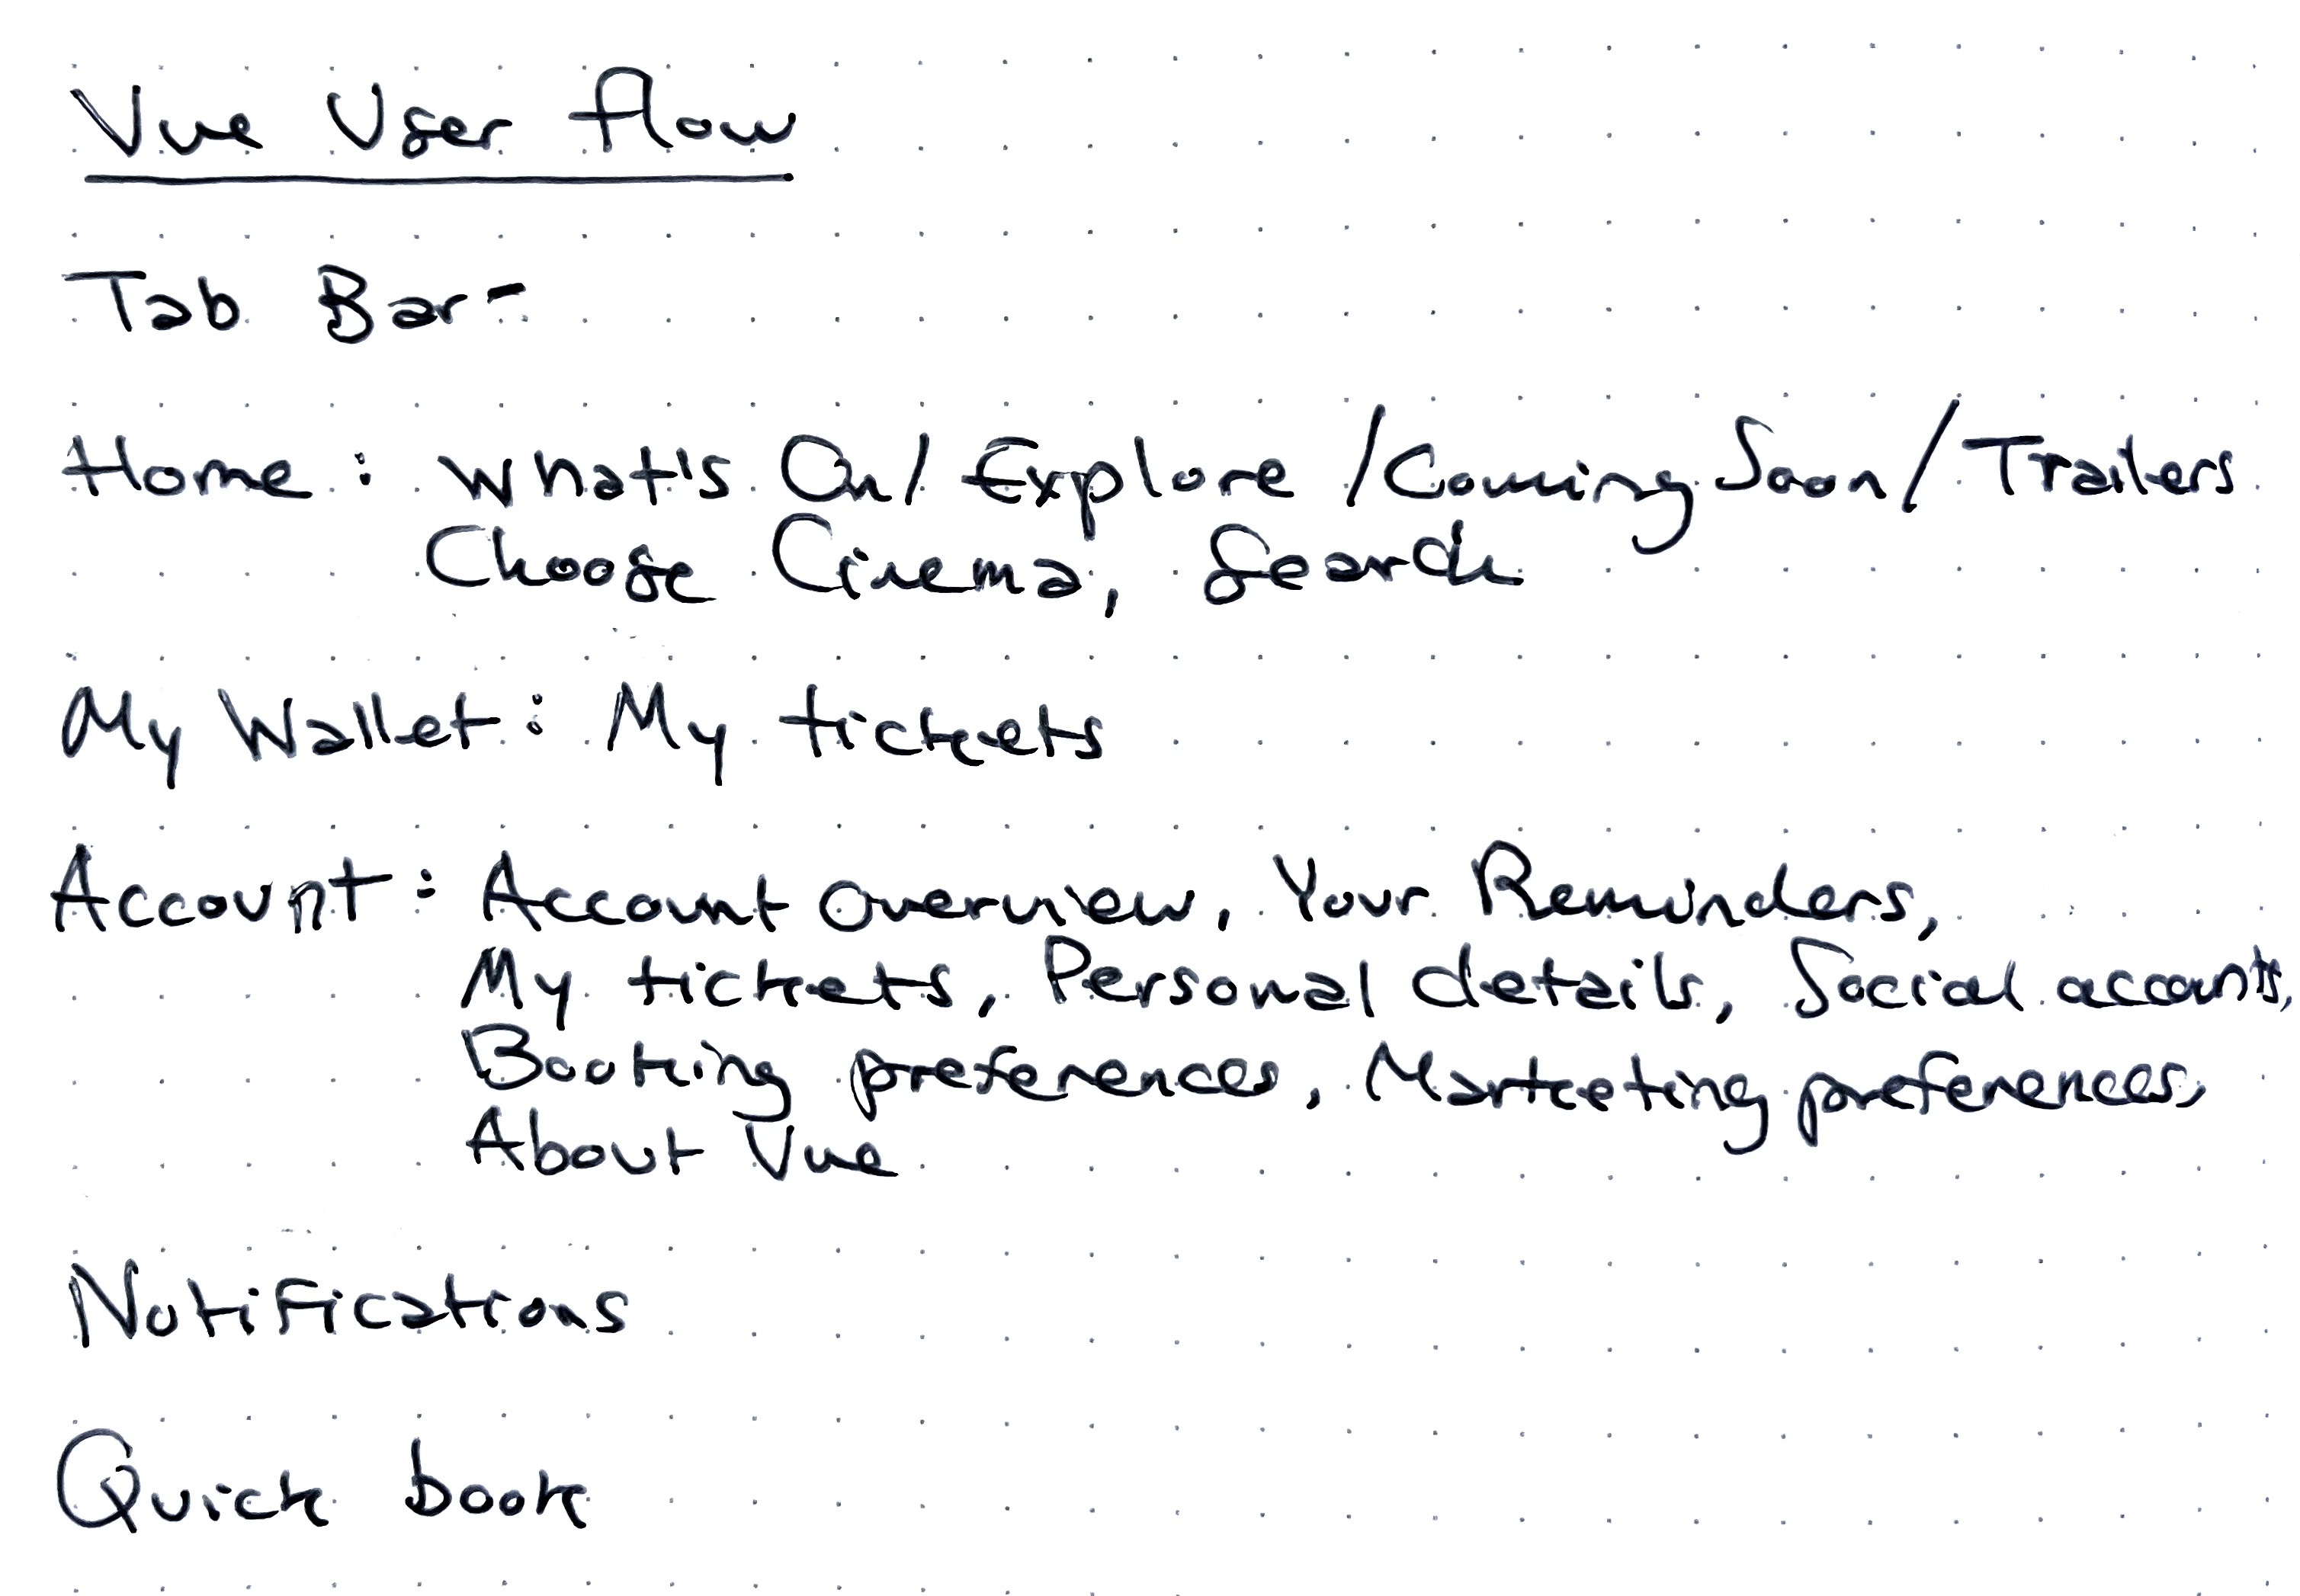 Vue User flow
Tab Bar-
Home: What's On/ Explore /Coming Soon/ Trailers
Choose Cinema, Search
My Wallet: My tickets
Account: Account overview, Your Reminders,
My tickets, Personal details, Social accounts,
Booking preferences, Marketing preferences,
About Vue
Notifications
Quick book